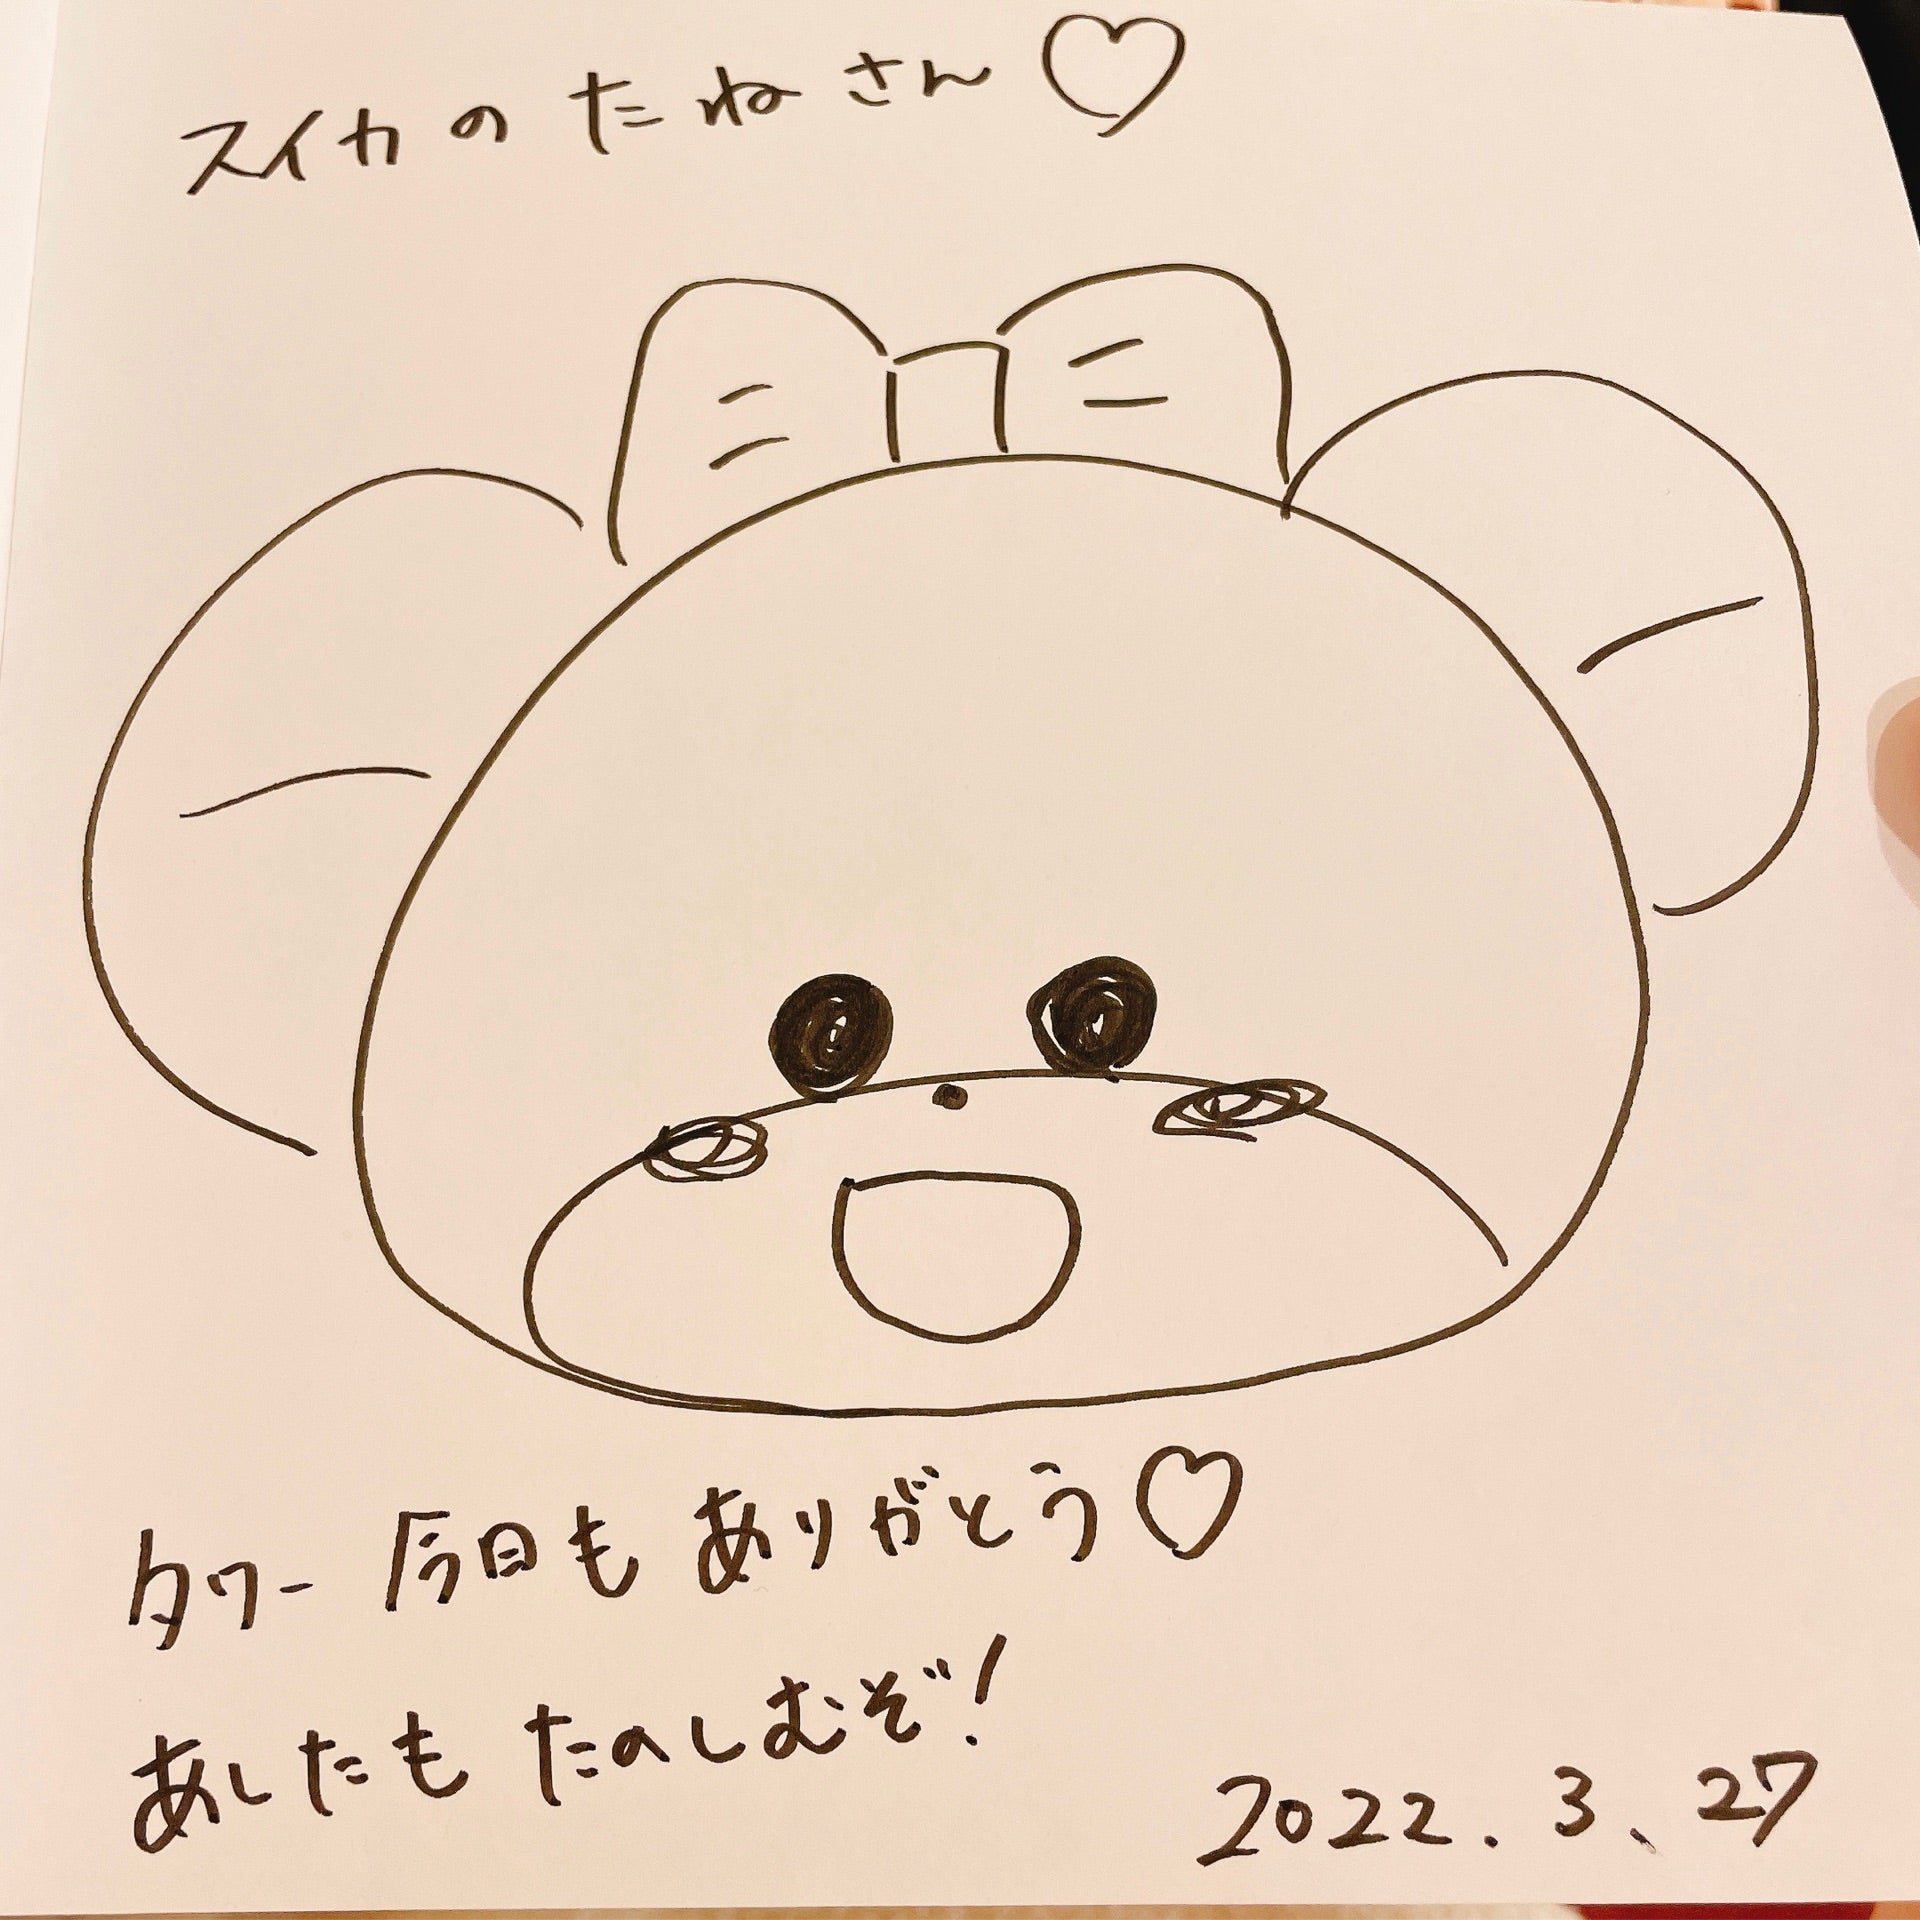 スイカのたねさん♡
タワー 今日も ありがとう♡
あしたも たのしむぞ!
2022.3.27